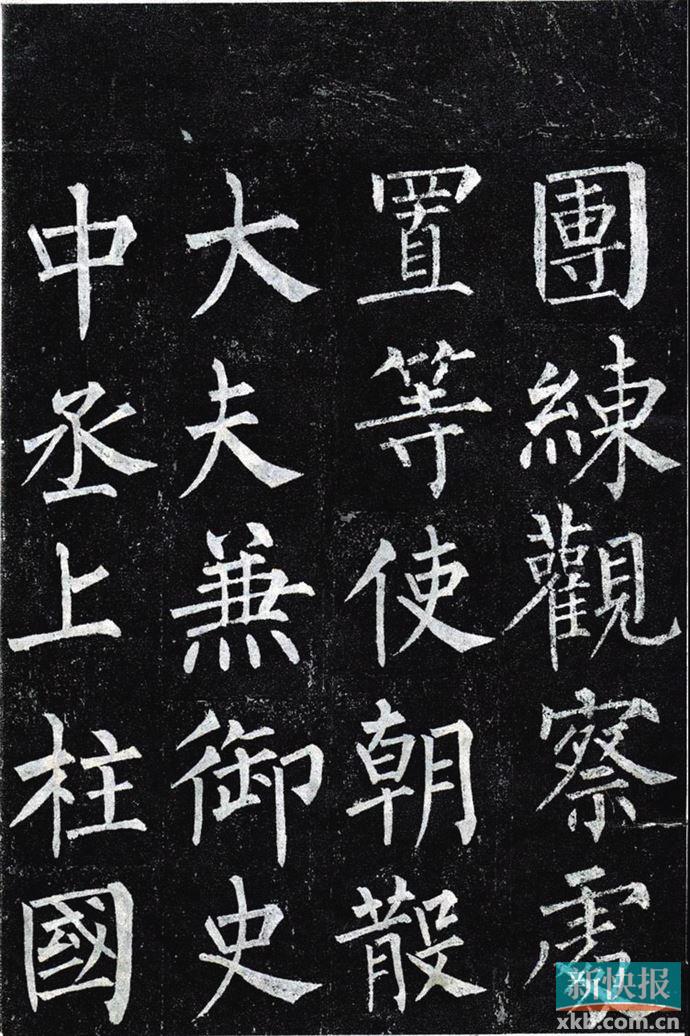 團練觀察處
置等使朝散
大夫兼御史
中丞上柱國
新快报
xkb.com.cn